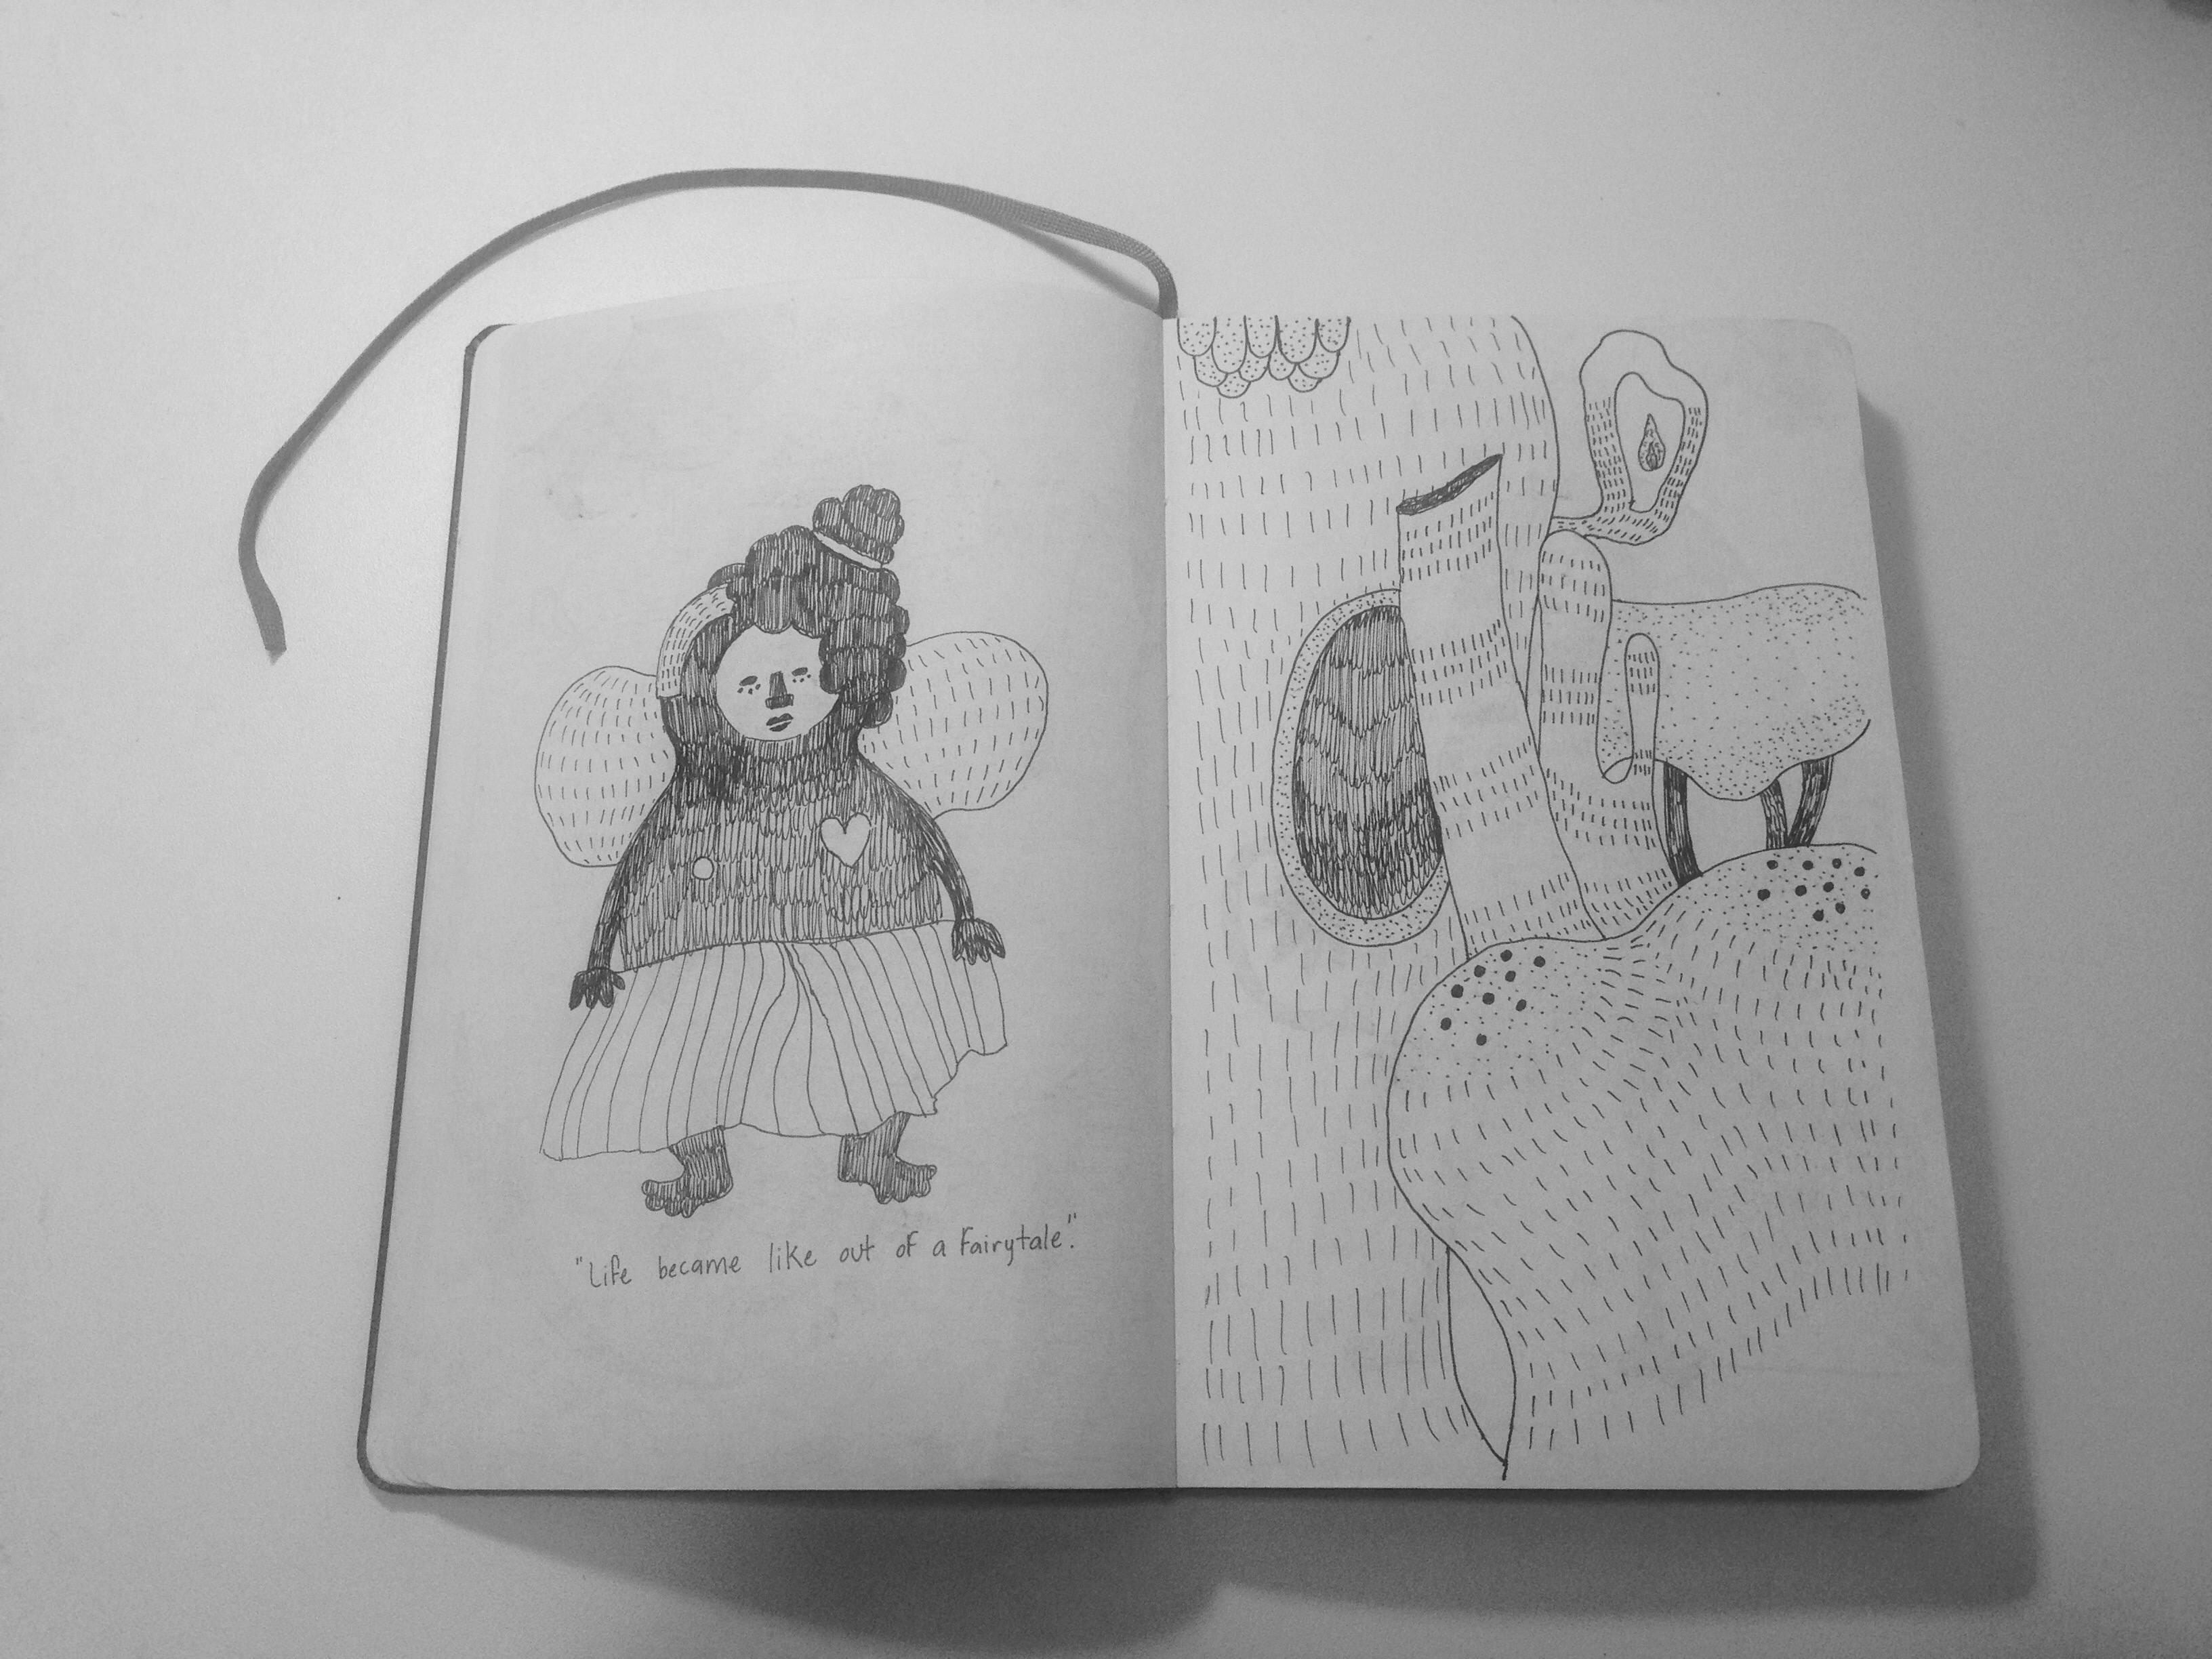 "Life became like out of a Fairytale."